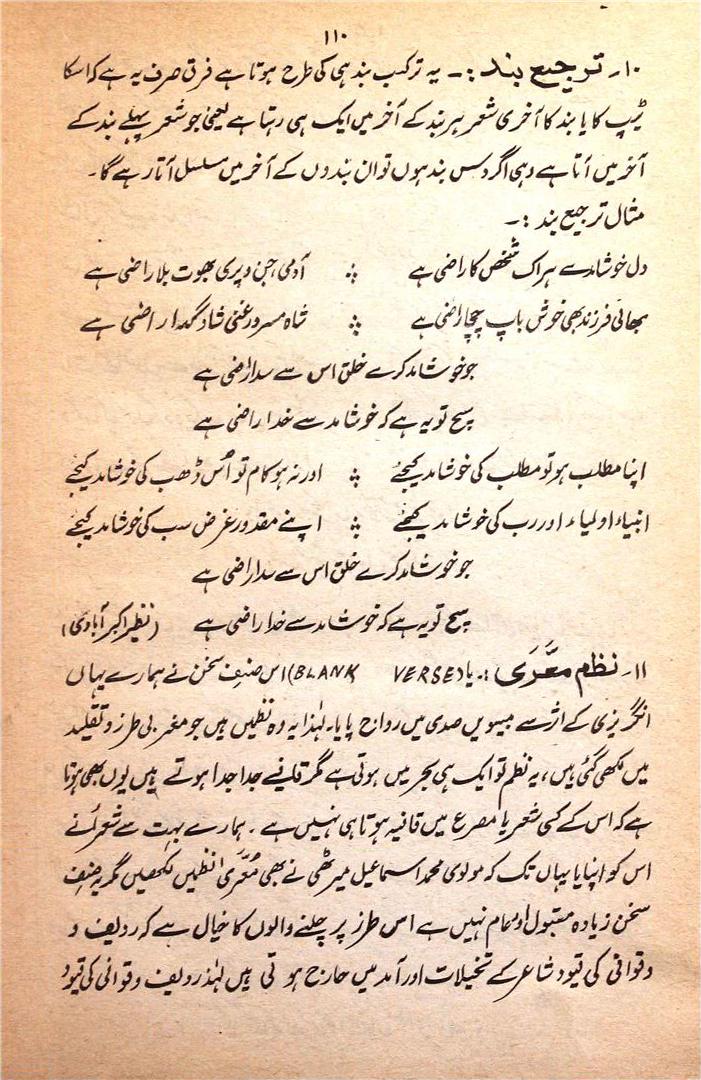 ۱۱۰
۱۰۔ ترجیع بند :۔ یہ ترکیب بند ہی کی طرح ہوتا ہے فرق صرف یہ ہے کہ اسکا
ٹیپ کا یا بند کا آخری شعر ہر بند کے آخر میں ایک ہی رہتا ہے یعنی جو شعر پہلے بند کے
آخر میں آتا ہے وہی اگر دس بند ہوں تو ان بندوں کے آخر میں مسلسل آتا رہے گا۔
مثال ترجیع بند :۔
دل خوشامد سے ہر اک شخص کا راضی ہے ؞ آدمی جن و پری بھوت بلا راضی ہے
بھائی فرزند بھی خوش باپ چچا راضی ہے ؞ شاہ مسرور غنی شاد گدا راضی ہے
جو خوشامد کرے خلق اس سے سدا راضی ہے
سچ تو یہ ہے کہ خوشامد سے خدا راضی ہے
اپنا مطلب ہو تو مطلب کی خوشامد کیجئے ؞ اور نہ ہو کام تو اُس ڈھب کی خوشامد کیجے
انبیاء اولیاء اور رب کی خوشامد کیجئے ؞ اپنے مقدور غرض سب کی خوشامد کیجے
جو خوشامد کرے خلق اس سے سدا راضی ہے
سچ تو یہ ہے کہ خوشامد سے خدا راضی ہے (نظیر اکبر آبادی)
۱۱۔ نظم معرّیٰ :۔ یا (BLANK VERSE) اس صنفِ سخن نے ہمارے یہاں
انگریزی کے اثر سے بیسویں صدی میں رواج پایا۔ لہٰذا یہ وہ نظمیں ہیں جو مغربی طرز و تقلید
میں لکھی گئی ہیں، یہ نظم تو ایک ہی بحر میں ہوتی ہے مگر قافیے جدا جدا ہوتے ہیں یوں بھی ہوتا
ہے کہ اس کے کسی شعر یا مصرع میں قافیہ ہوتا ہی نہیں ہے۔ ہمارے بہت سے شعرائے
اس کو اپنایا یہاں تک کہ مولوی محمد اسماعیل میرٹھی نے بھی معرّیٰ نظمیں لکھیں مگر یہ صنف
سخن زیادہ مقبول اور عام نہیں ہے اس طرز پر چلنے والوں کا خیال ہے کہ ردیف و
و قوافی کی قیود شاعر کے تخیلات اور آمد میں حارج ہوتی ہیں لہٰذ ردیف و قوافی کی قیود